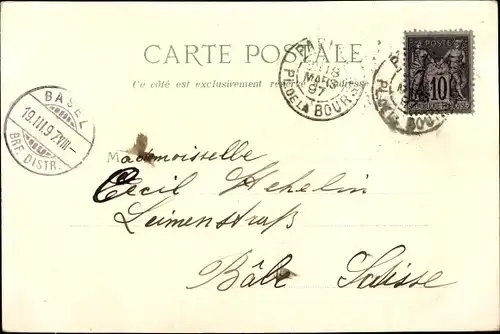 CARTE POSTALE
Ce côté est exclusivement réservé à l'adresse
PARIS
18
MARS
97
PL. DE LA BOURSE
POSTE
10
PL. DE LA BOURSE
BASEL
19.III.97.VIII-
BRF. DISTR.
Mademoiselle
Cécil Hehelin
Leimenstraß
Bâle Suisse